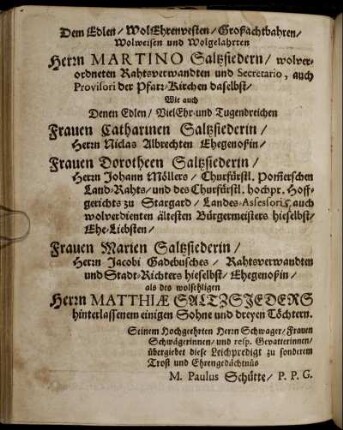 Dem Edlen / WolEhrenvesten / Großachtbahren /
Wolweisen und Wolgelahrten
Herrn MARTINO Saltzsiedern / wolver-
ordneten Rahtsverwandten und Secretario, auch
Provisori der Pfarr-Kirchen daselbst /
Wie auch
Denen Edlen / VielEhr-und Tugendreichen
Frauen Catharinen Saltzsiederin /
Herrn Niclas Albrechten Ehegenoßin /
Frauen Dorotheen Saltzsiederin /
Herrn Johann Möllers / Churfürstl. Pom̃erschen
Land-Rahts / und des Churfürstl. hochpr. Hoff-
gerichts zu Stargard / Landes-Assessoris, auch
wolverdienten ältesten Bürgermeisters hieselbst /
Ehe-Liebsten /
Frauen Marien Saltzsiederin /
Herrn Jacobi Gadebusches / Rahtsverwandten
und Stadt-Richters hieselbst / Ehegenoßin /
als des wolsehligen
Herrn MATTHIÆ SALTZSIEDERS
hinterlassenem einigen Sohne und dreyen Töchtern.
Seinem Hochgeehrten Herrn Schwager / Frauen
Schwägerinnen / und resp. Gevatterinnen /
übergiebet diese Leichpredigt zu sonderem
Trost und Ehrengedächtnüs
M. Paulus Schütte / P. P. G.